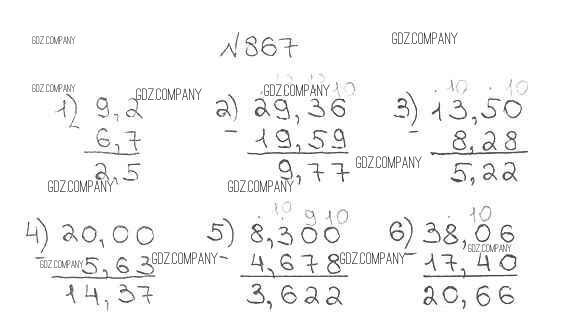 GDZ.COMPANY
№867
GDZ.COMPANY
GDZ.COMPANY
GDZ.COMPANY
GDZ.COMPANY
10
10
10
10
10
1) 9,2
2) 29,36
3) 13,50
- 6,7
- 19,59
- 8,28
2,5
9,77
5,22
GDZ.COMPANY
GDZ.COMPANY
GDZ.COMPANY
10
9 10
10
4) 20,00
5) 8,300
6) 38,06
- 5,63
- 4,678
- 17,40
GDZ.COMPANY
GDZ.COMPANY
GDZ.COMPANY
GDZ.COMPANY
14,37
3,622
20,66